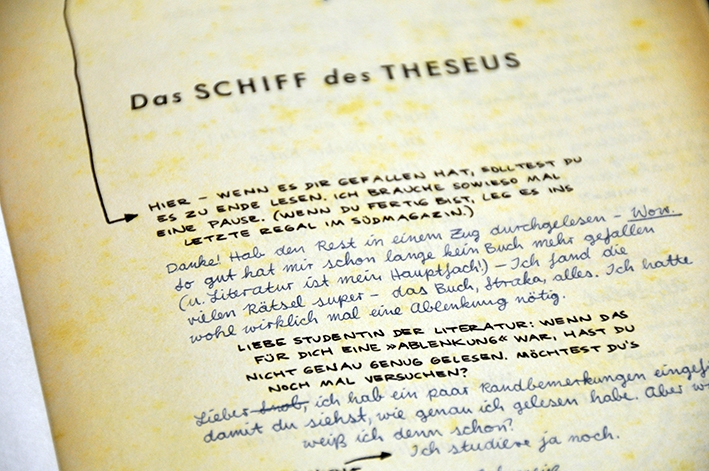 Das SCHIFF des THESEUS
HIER – WENN ES DIR GEFALLEN HAT, SOLLTEST DU
ES ZU ENDE LESEN. ICH BRAUCHE SOWIESO MAL
EINE PAUSE. (WENN DU FERTIG BIST, LEG ES INS
LETZTE REGAL IM SÜDMAGAZIN.)
Danke! Hab den Rest in einem Zug durchgelesen – Wow.
So gut hat mir schon lange kein Buch mehr gefallen
(u. Literatur ist mein Hauptfach!) – Ich fand die
vielen Rätsel super – das Buch, Straka, alles. Ich hatte
wohl wirklich mal eine Ablenkung nötig.
LIEBE STUDENTIN DER LITERATUR: WENN DAS
FÜR DICH EINE »ABLENKUNG« WAR, HAST DU
NICHT GENAU GENUG GELESEN. MÖCHTEST DU'S
NOCH MAL VERSUCHEN?
Lieber Snob, ich hab ein paar Randbemerkungen eingefü
damit du siehst, wie genau ich gelesen habe. Aber w
weiß ich denn schon?
Ich studiere ja noch.